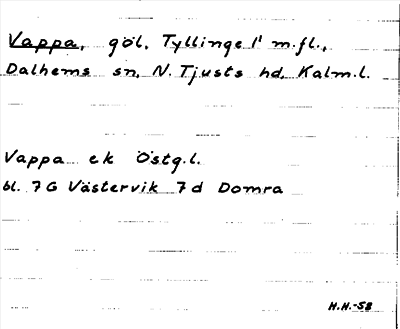 Vappa, göl, Tyllinge 1¹ m.fl.,
Dalhems sn, N. Tjusts hd, Kalm.l.
Vappa ek Östg.l.
bl. 7G Västervik 7d Domra
H.H.-58